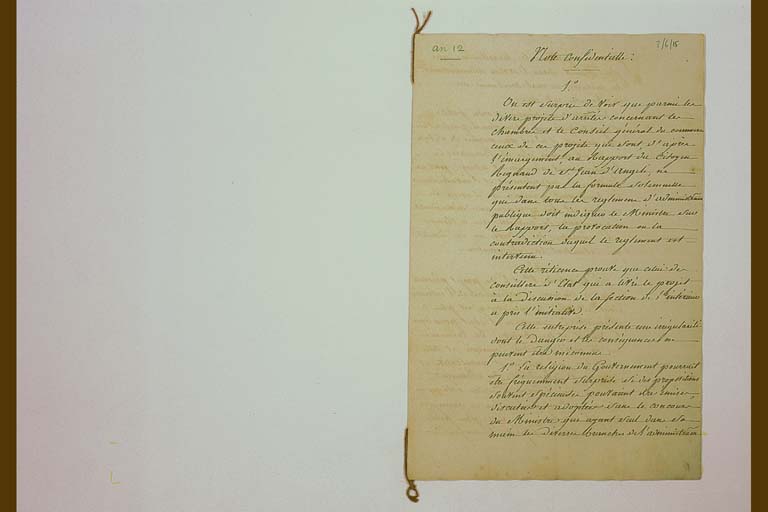 an 12
7/6/15
Note confidentielle :
1.°
On est surpris de voir que parmi les
divers projets d'arrêtés concernant les
chambres et le Conseil général du commerce
ceux de ces projets que sont d'après
l'émargement au Rapport du Citoyen
Regnaud de St Jean d'Angely, ne
présentent pas la formule solennelle
qui dans tous les reglements d'administration
publique doit indiquer le Ministre sur
le Rapport, la provocation ou la
contradiction duquel le reglement est
intervenu.
Cette réticence prouve que celui des
conseillers d'Etat qui a livré le projet
à la discussion de la section de l'intérieur
a pris l'initiative.
Cette entreprise présente une irrégularité
dont le danger et les conséquences ne
peuvent être méconnus.
1° La religion du Gouvernement pourrait
être fréquemment surprise si des propositions
souvent spécieuses pouvaient être émises,
discutées et adoptées sans le concours
du Ministre qui ayant seul dans sa
main les diverses branches de l'administration